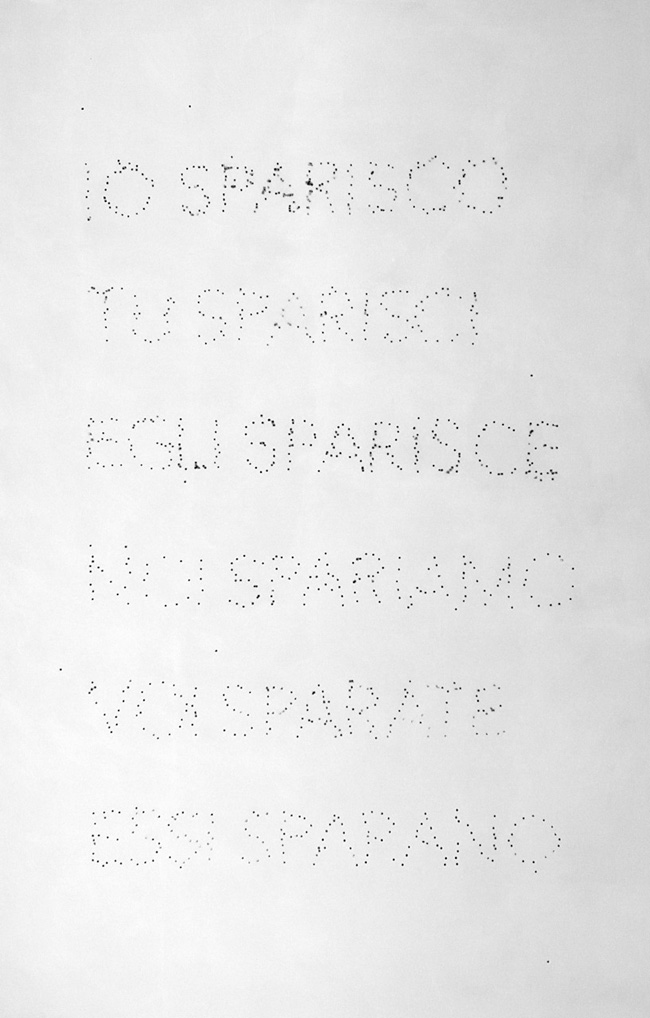 IO SPARISCO
TU SPARISCI
EGLI SPARISCE
NOI SPARIAMO
VOI SPARATE
ESSI SPARANO